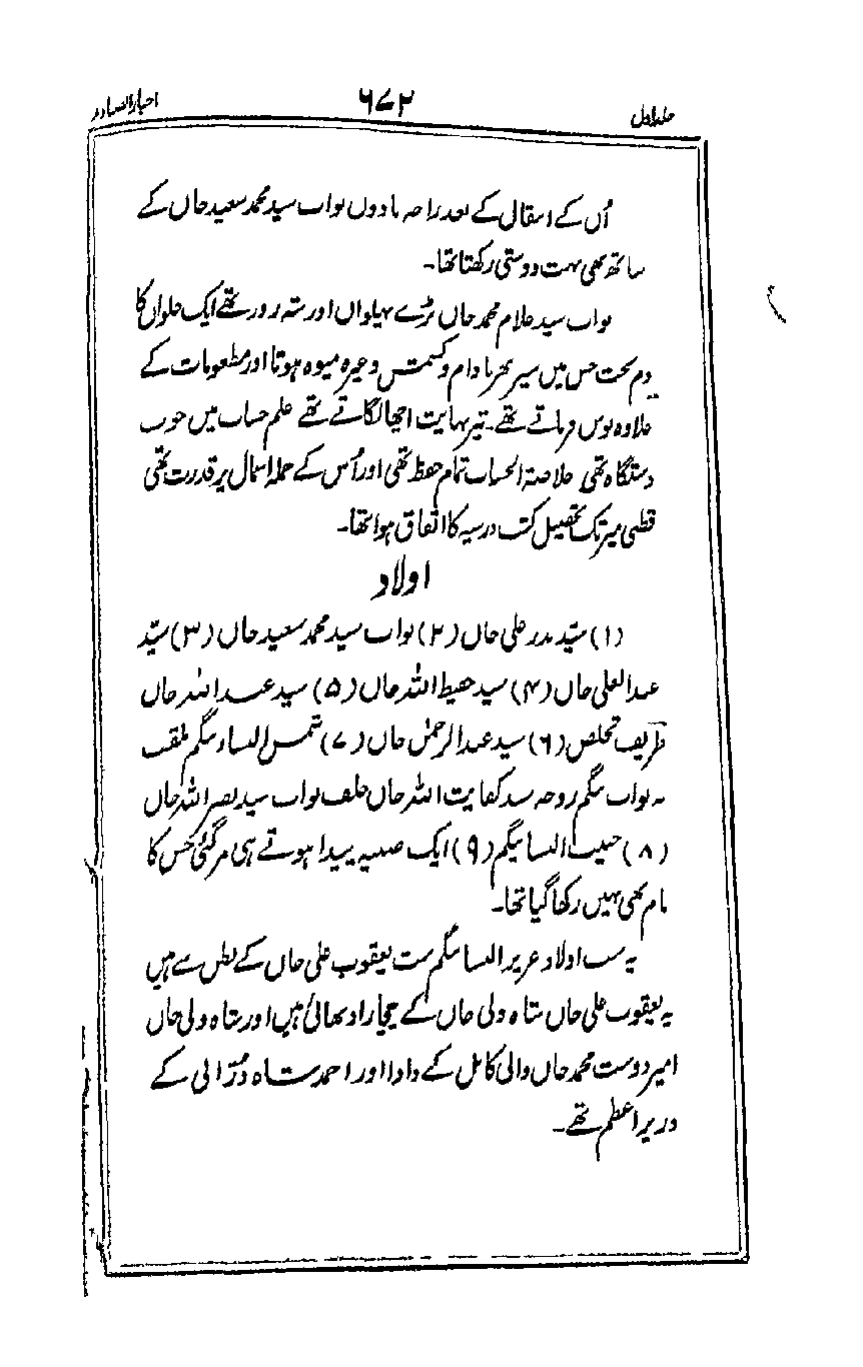 جلد اول ۶۷۲ اخبار الصنادید
اُن کے انتقال کے بعد راجہ مادون نواب سید محمد سعید خاں کے
ساتھ بھی بہت دوستی رکھتا تھا۔
نواب سید غلام محمد خاں بڑے پہلوان اور شہ زور تھے ایک حلوان کا
دم پخت جس میں سیر بھر بادام و کشمش وغیرہ میوہ ہوتا اور مطعومات کے
علاوہ نوش فرماتے تھے۔ تیر نہایت اچھا لگاتے تھے علم حساب میں خوب
دستگاہ تھی خلاصۃ الحساب تمام حفظ تھی اور اُس کے جملہ اشکال پر قدرت تھی
قطبی میر تک تحصیل کتب درسیہ کا اتفاق ہوا تھا۔
اولاد
(۱) سیّد بدر علی خاں (۲) نواب سید محمد سعید خاں (۳) سیّد
عبد العلی خاں (۴) سید حفیظ اللہ خاں (۵) سید عبد اللہ خاں
ظریف تخلص (۶) سید عبد الرحمٰن خاں (۷) شمس النساء بیگم ملقب
بہ نواب بیگم زوجہ سید کفایت اللہ خاں خلف نواب سید نصر اللہ خاں
(۸) حبیب النسا بیگم (۹) ایک صبیہ پیدا ہوتے ہی مر گئی جس کا
نام بھی نہیں رکھا گیا تھا۔
یہ سب اولاد عزیز النسا بیگم بنت یعقوب علی خاں کے بطن سے ہیں
یہ یعقوب علی خاں شاہ ولی خاں کے چچا زاد بھائی ہیں اور شاہ ولی خاں
امیر دوست محمد خاں والی کابل کے دادا اور احمد شاہ دُرّانی کے
وزیر اعظم تھے۔